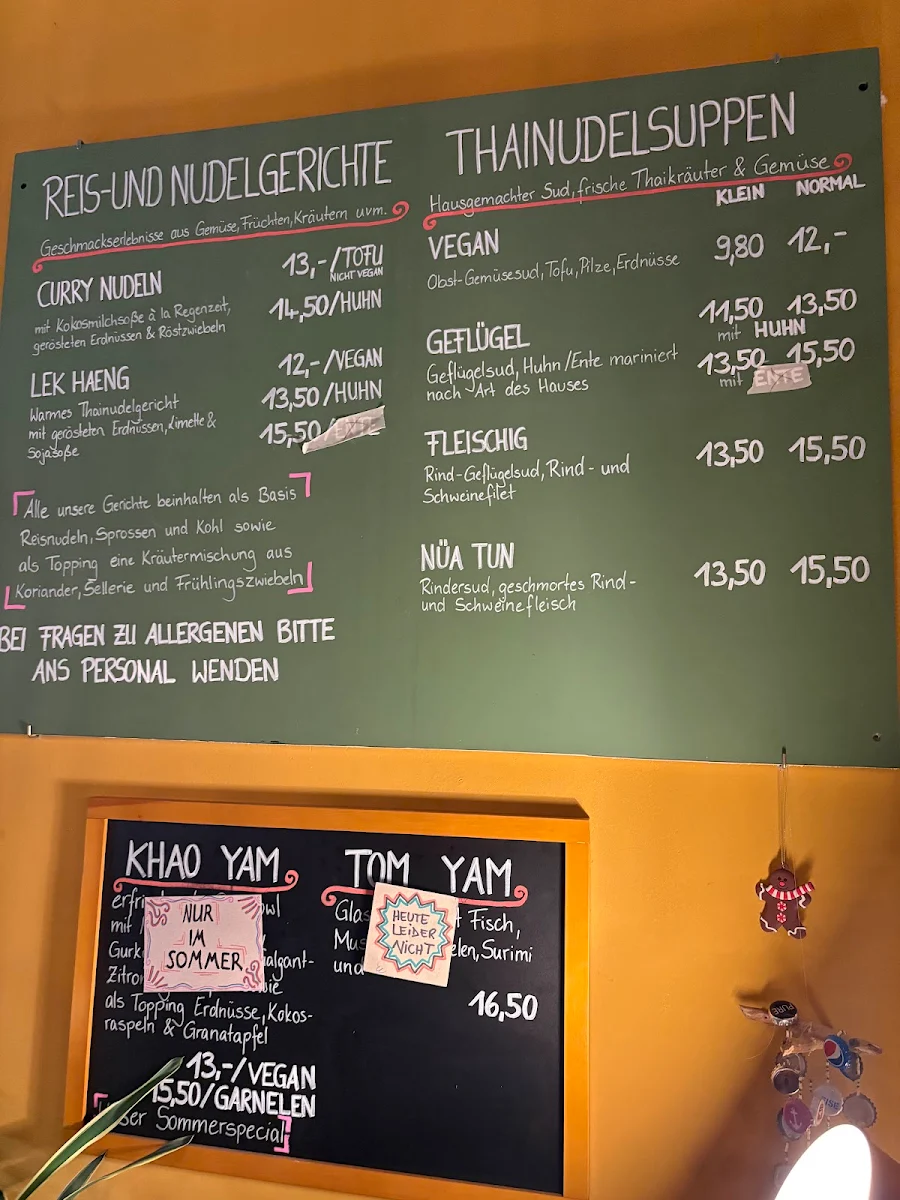 REIS-UND NUDELGERICHTE
Geschmackserlebnisse aus Gemüse, Früchten, Kräutern uvm.
CURRY NUDELN
13,-/TOFU
NICHT VEGAN
14,50/HUHN
mit Kokosmilchsoße à la Regenzeit,
gerösteten Erdnüssen & Röstzwiebeln
LEK HAENG
12,-/VEGAN
13,50/HUHN
15,50/ENTE
Warmes Thainudelgericht
mit gerösteten Erdnüssen, Limette &
Sojasoße
Alle unsere Gerichte beinhalten als Basis
Reisnudeln, Sprossen und Kohl sowie
als Topping eine Kräutermischung aus
Koriander, Sellerie und Frühlingszwiebeln
BEI FRAGEN ZU ALLERGENEN BITTE
ANS PERSONAL WENDEN
THAINUDELSUPPEN
Hausgemachter Sud, frische Thaikräuter & Gemüse
KLEIN NORMAL
VEGAN 9,80 12,-
Obst-Gemüsesud, Tofu, Pilze, Erdnüsse
GEFLÜGEL 11,50 13,50
mit HUHN
Geflügelsud, Huhn/Ente mariniert
nach Art des Hauses
13,50 15,50
mit ENTE
FLEISCHIG 13,50 15,50
Rind-Geflügelsud, Rind- und
Schweinefilet
NÜA TUN 13,50 15,50
Rindersud, geschmortes Rind-
und Schweinefleisch
KHAO YAM
NUR
IM
SOMMER
mit
als Topping Erdnüsse, Kokos-
raspeln & Granatapfel
13,-/VEGAN
15,50/GARNELEN
Unser Sommerspecial
TOM YAM
HEUTE
LEIDER
NICHT
Fisch,
Surimi
und
16,50
PURE